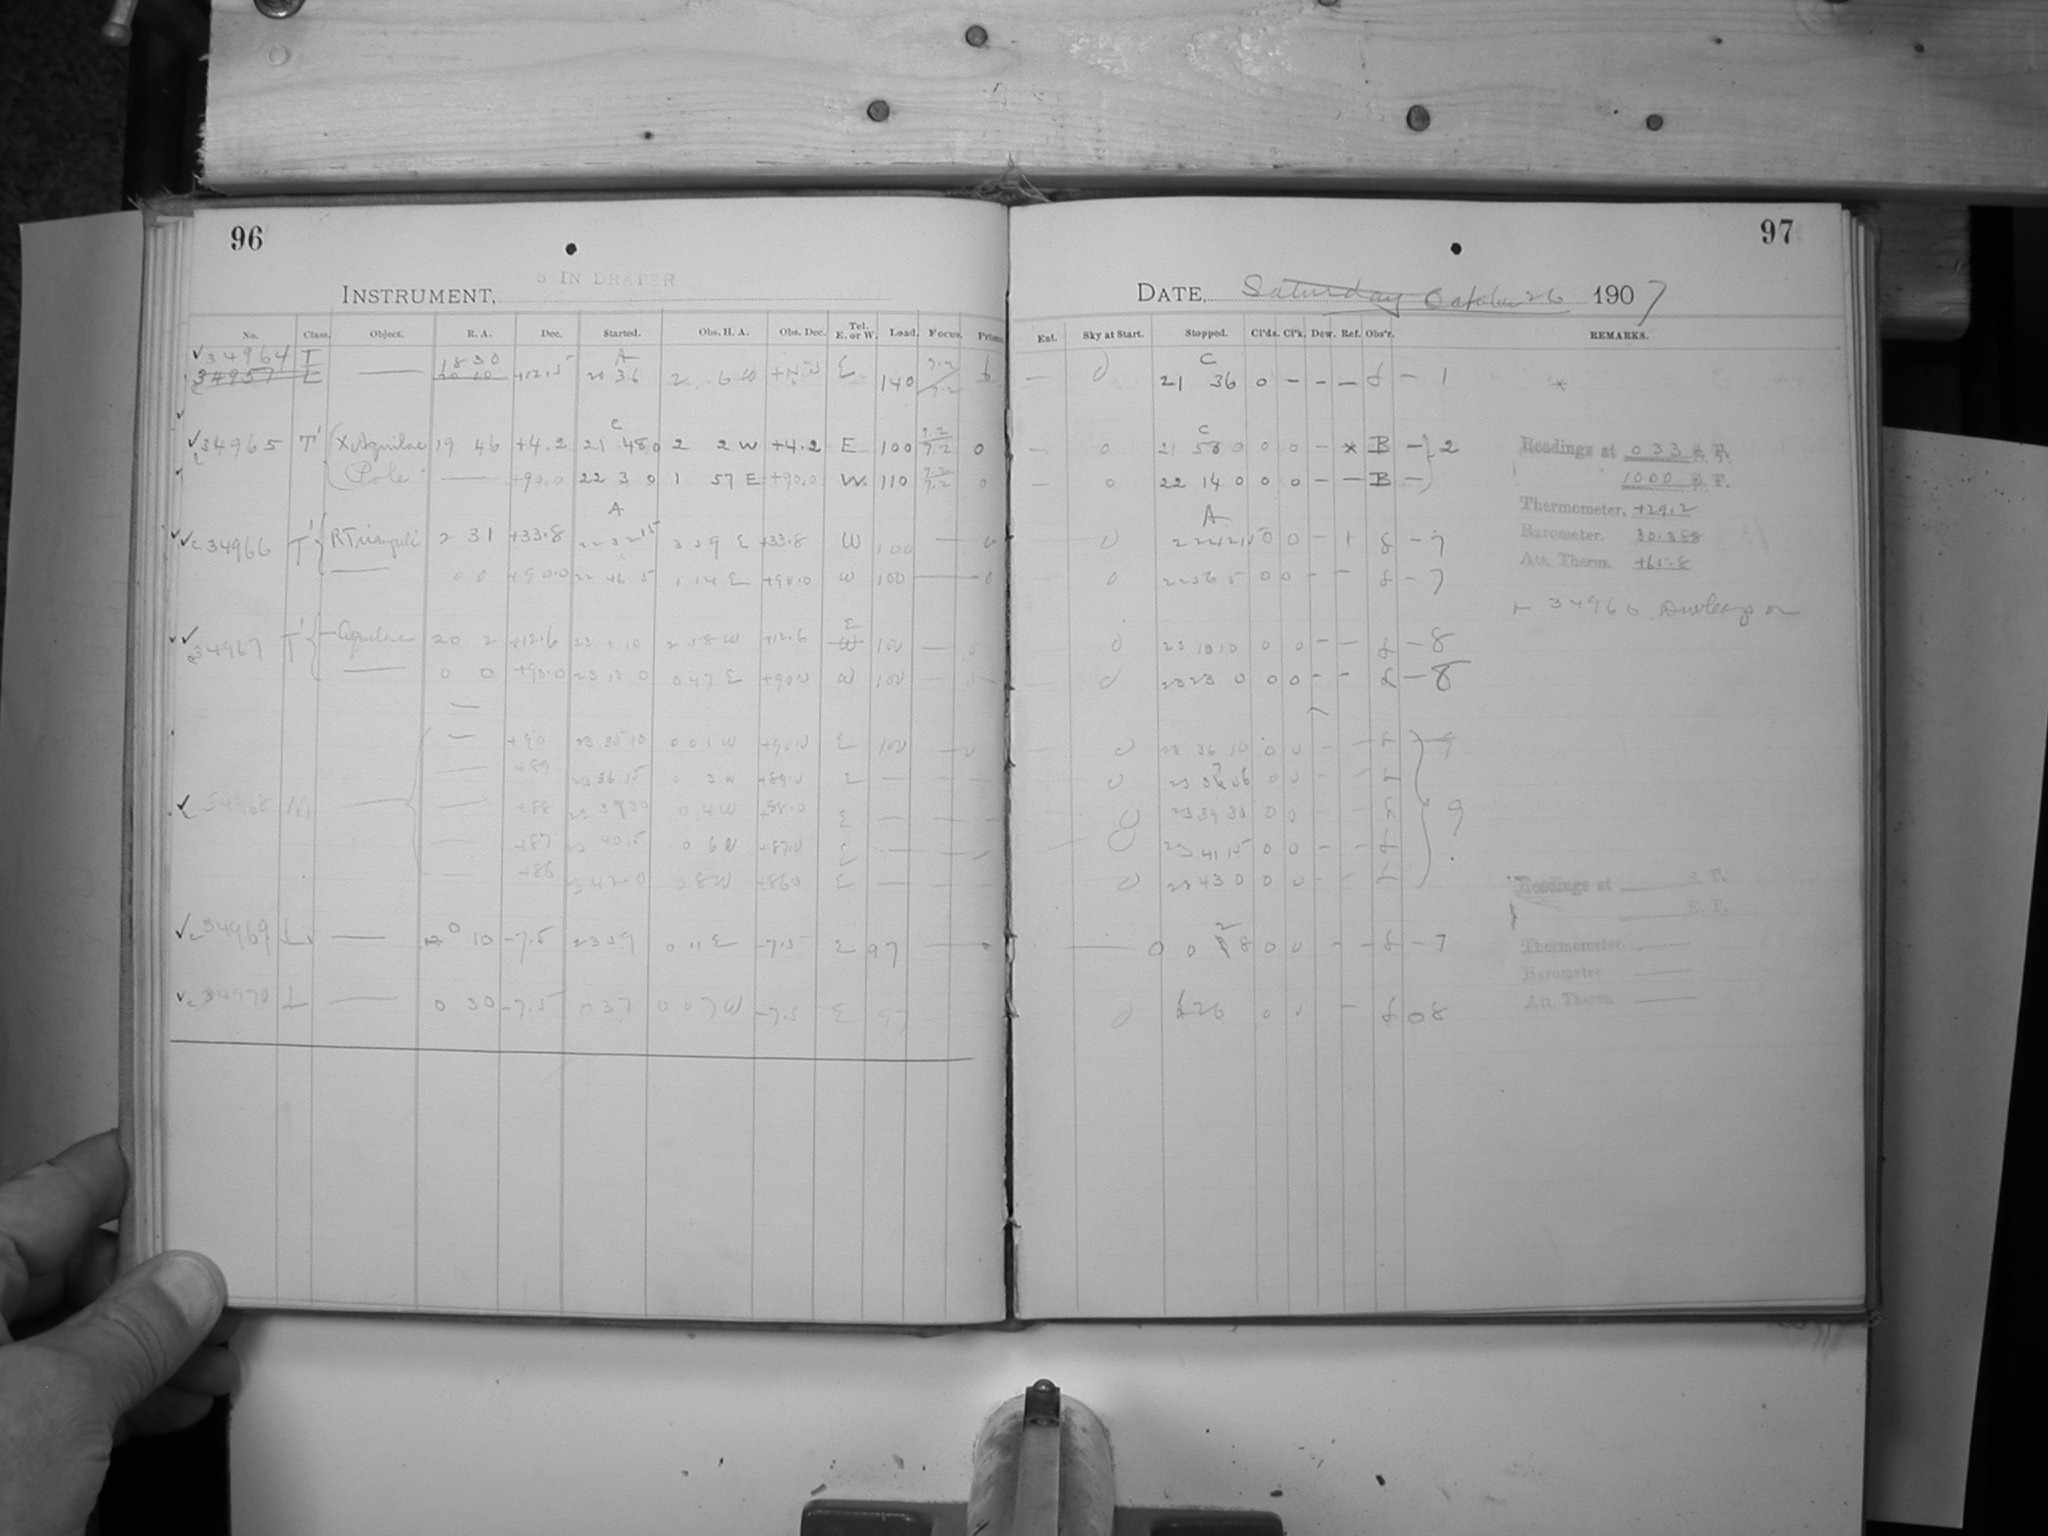 96
8 IN DRAPER
INSTRUMENT,
No. Class. Object. R. A. Dec. Started. Obs. H. A. Obs. Dec. Tel. E. or W. Load. Focus. Prism
34964 I 18 30 A
34957 E 20 10 +12.5 20 36 2 6 W E 140
C
34965 T' X Aquilae 19 46 +4.2 21 48 0 2 2 W +4.2 E 100 7.2 7.2 0
Pole — +90.0 22 3 0 1 57 E +90.0 W. 110 7.2 0
A
34966 T' R Trianguli 2 31 +33.8 22 32 15 3 59 E +33.8 W 100 — 0
— 0 0 +90.0 22 46 5 1 14 E +90.0 W 100 — 0
34967 T' Aquilae 20 2 +12.6 23 0 10 2 58 W +12.6 E W 100 —
— 0 0 +90.0 23 13 0 0 47 E +90.0 W 100 —
— +90 23 35 10 0 0 1 W +90.0 E 100 — 0
— +89 23 36 0 3 W +89.0 E — —
34968 — +88 0 4 W +88.0 E — —
— +87 40 15 0 6 W +87.0 E — —
— +86 42 0 0 8 W +86.0 E — —
34969 L — 0 10 -7.5 23 59 0 11 E -7.5 E 97 —
34970 L — 0 30 -7.5 0 37 0 07 W -7.5 E 97
97
DATE, Saturday October 26 1907
Ent. Sky at Start. Stopped. Cl'ds. Cl'k. Dew. Ref. Obs'r. REMARKS.
C
— 0 21 36 0 — — — — 1 *
C
— 0 21 58 0 0 0 — * B — 2
— 0 22 14 0 0 0 — — B —
A
0 22 42 15 0 0 — + — 7
0 22 56 5 0 0 — — — 7
0 23 10 10 0 0 — — — 8
0 23 23 0 0 0 — — — 8
0 23 36 10 0 0 — — 9
0 23 0 0 — —
0 23 39 30 0 0 — — 9
0 23 41 15 0 0 — —
0 23 43 0 0 0 — —
— 0 0 8 0 0 — — — 7
0 1 26 0 0 — 08
Readings at 0 33 S. T.
1000 S. T.
Thermometer. +29.2
Barometer. 30.388
Att. Therm. +65.8
34966
Readings at S. T.
S. T.
Thermometer. —
Barometer —
Att. Therm. —